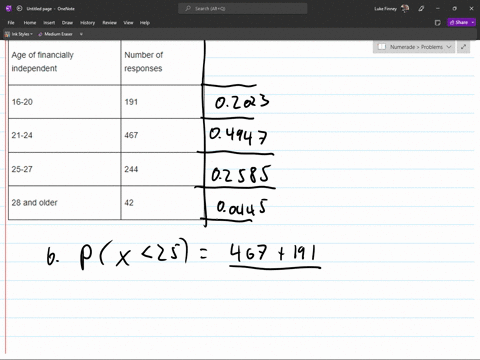 Untitled page - OneNote
Luke Finney
File Home Insert Draw History Review View Help
Share
Ink Styles Medium Eraser
Numerade > Problems
Age of financially independent Number of responses
16-20 191 0.2023
21-24 467 0.4947
25-27 244 0.2585
28 and older 42 0.0445
b. P(x < 25) = 467 + 191